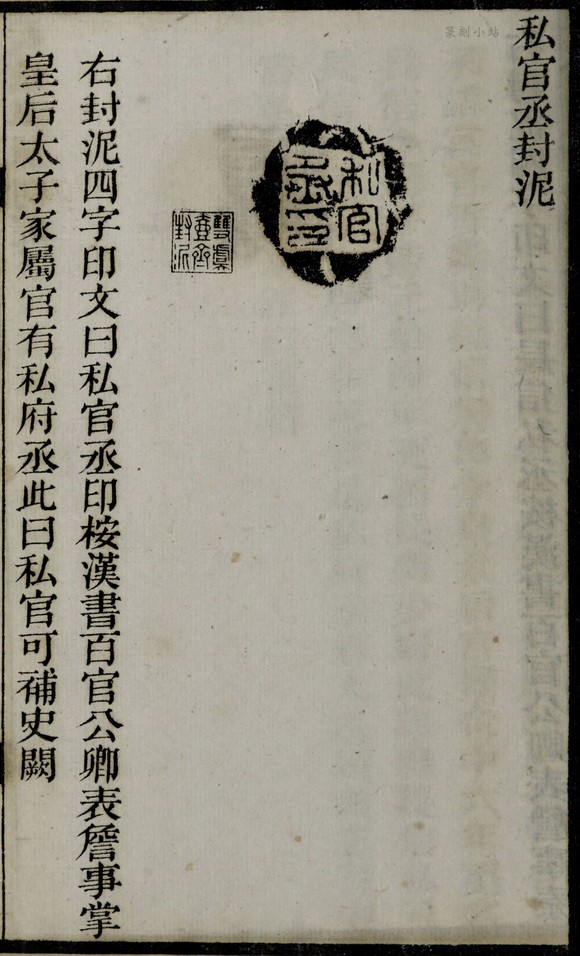 私官丞封泥
私官
丞印
雙虞
壺齋
封泥
右封泥四字印文曰私官丞印桉漢書百官公卿表詹事掌
皇后太子家屬官有私府丞此曰私官可補史闕
篆刻小站